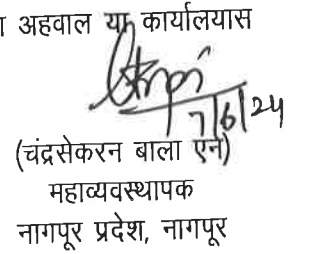 अहवाल या कार्यालयास
7/6/24
(चंद्रसेकरन बाला एन)
महाव्यवस्थापक
नागपूर प्रदेश, नागपूर